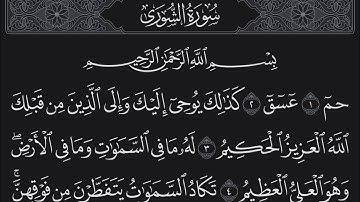 سُورَةُ الشُّورَىٰ
بِسْمِ ٱللَّهِ ٱلرَّحْمَٰنِ ٱلرَّحِيمِ
حمٓ ١ عٓسٓقٓ ٢ كَذَٰلِكَ يُوحِىٓ إِلَيْكَ وَإِلَى ٱلَّذِينَ مِن قَبْلِكَ
ٱللَّهُ ٱلْعَزِيزُ ٱلْحَكِيمُ ٣ لَهُۥ مَا فِى ٱلسَّمَٰوَٰتِ وَمَا فِى ٱلْأَرْضِ ۖ
وَهُوَ ٱلْعَلِىُّ ٱلْعَظِيمُ ٤ تَكَادُ ٱلسَّمَٰوَٰتُ يَتَفَطَّرْنَ مِن فَوْقِهِنَّ ۚ